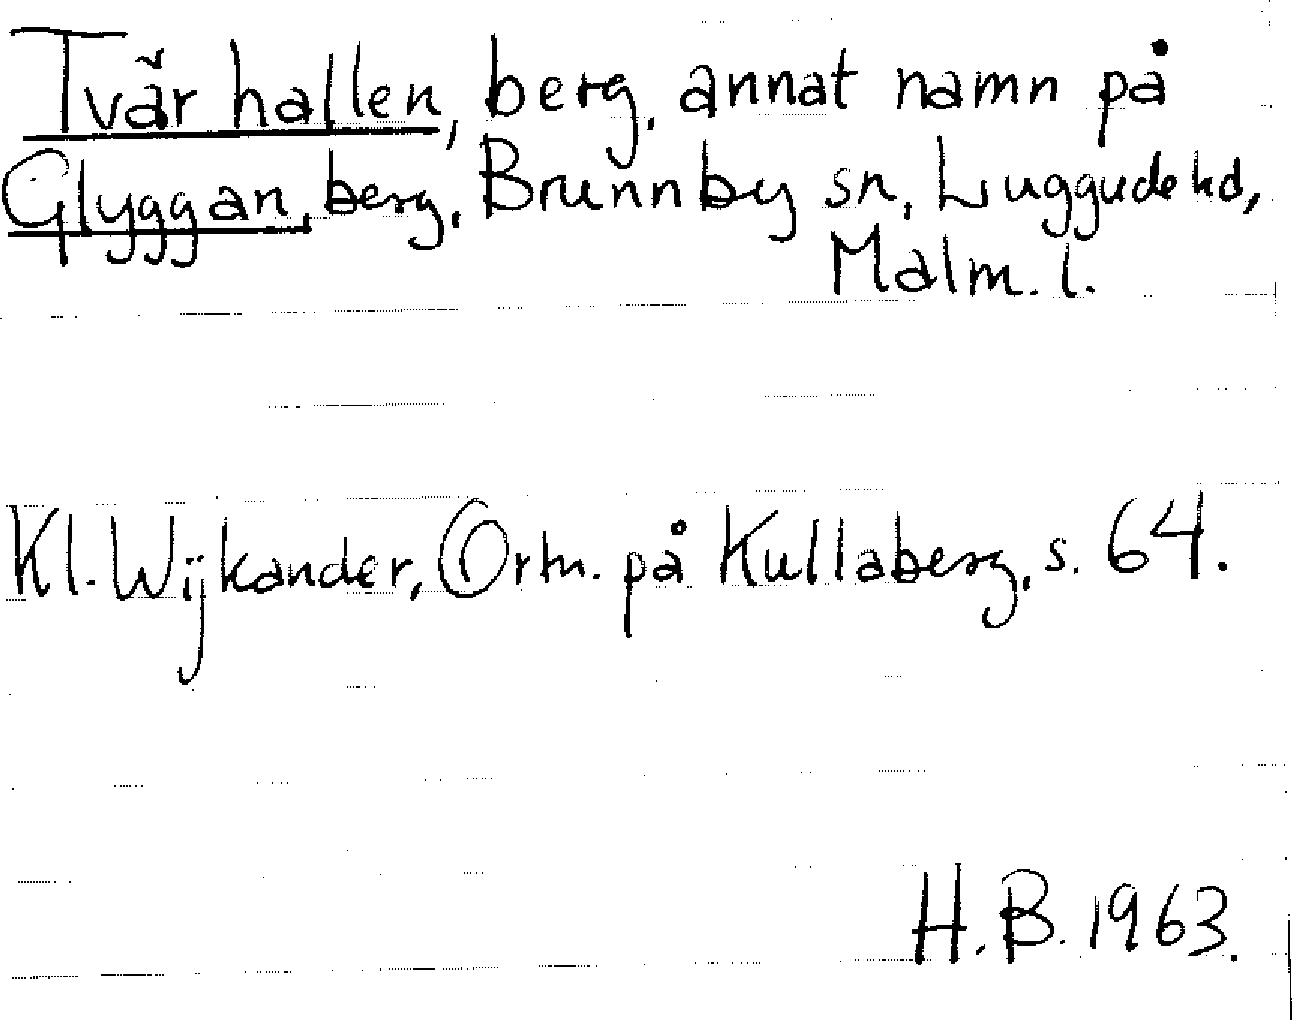 Tvär hallen, berg, annat namn på
Glyggan, berg, Brunnby sn, Luggude hd,
Malm. l.
Kl. Wijkander, Ortn. på Kullaberg, s. 64.
H. B. 1963.